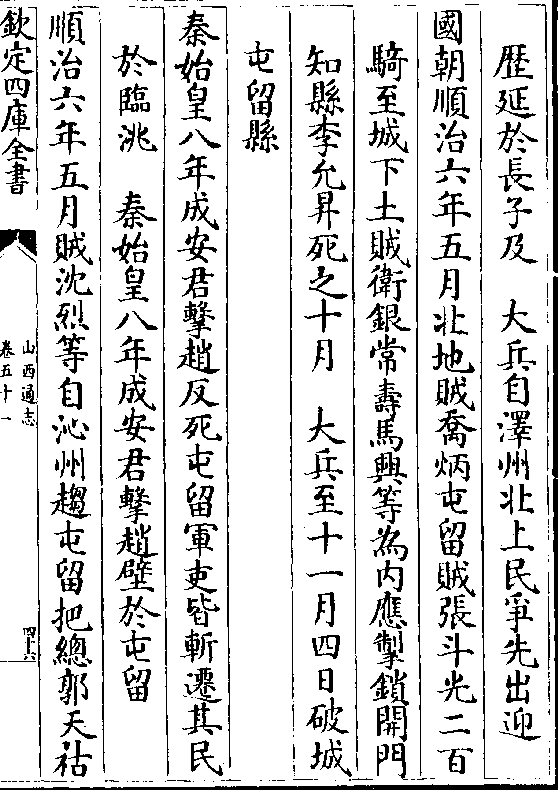 歴延於長子及　大兵自澤州北上民爭先出迎
國朝順治六年五月壮地賊喬炳屯留賊張斗光二百
騎至城下土賊衛銀常壽馬興等為内應掣鎖開門
知縣李允昇死之十月　大兵至十一月四日破城
屯留縣
秦始皇八年成安君擊趙反死屯留軍吏皆斬遷其民
於臨洮　秦始皇八年成安君擊趙壁於屯留
順治六年五月賊沈烈等自沁州趨屯留把總郭天祜
欽定四庫全書
山西通志
卷五十一
四十六